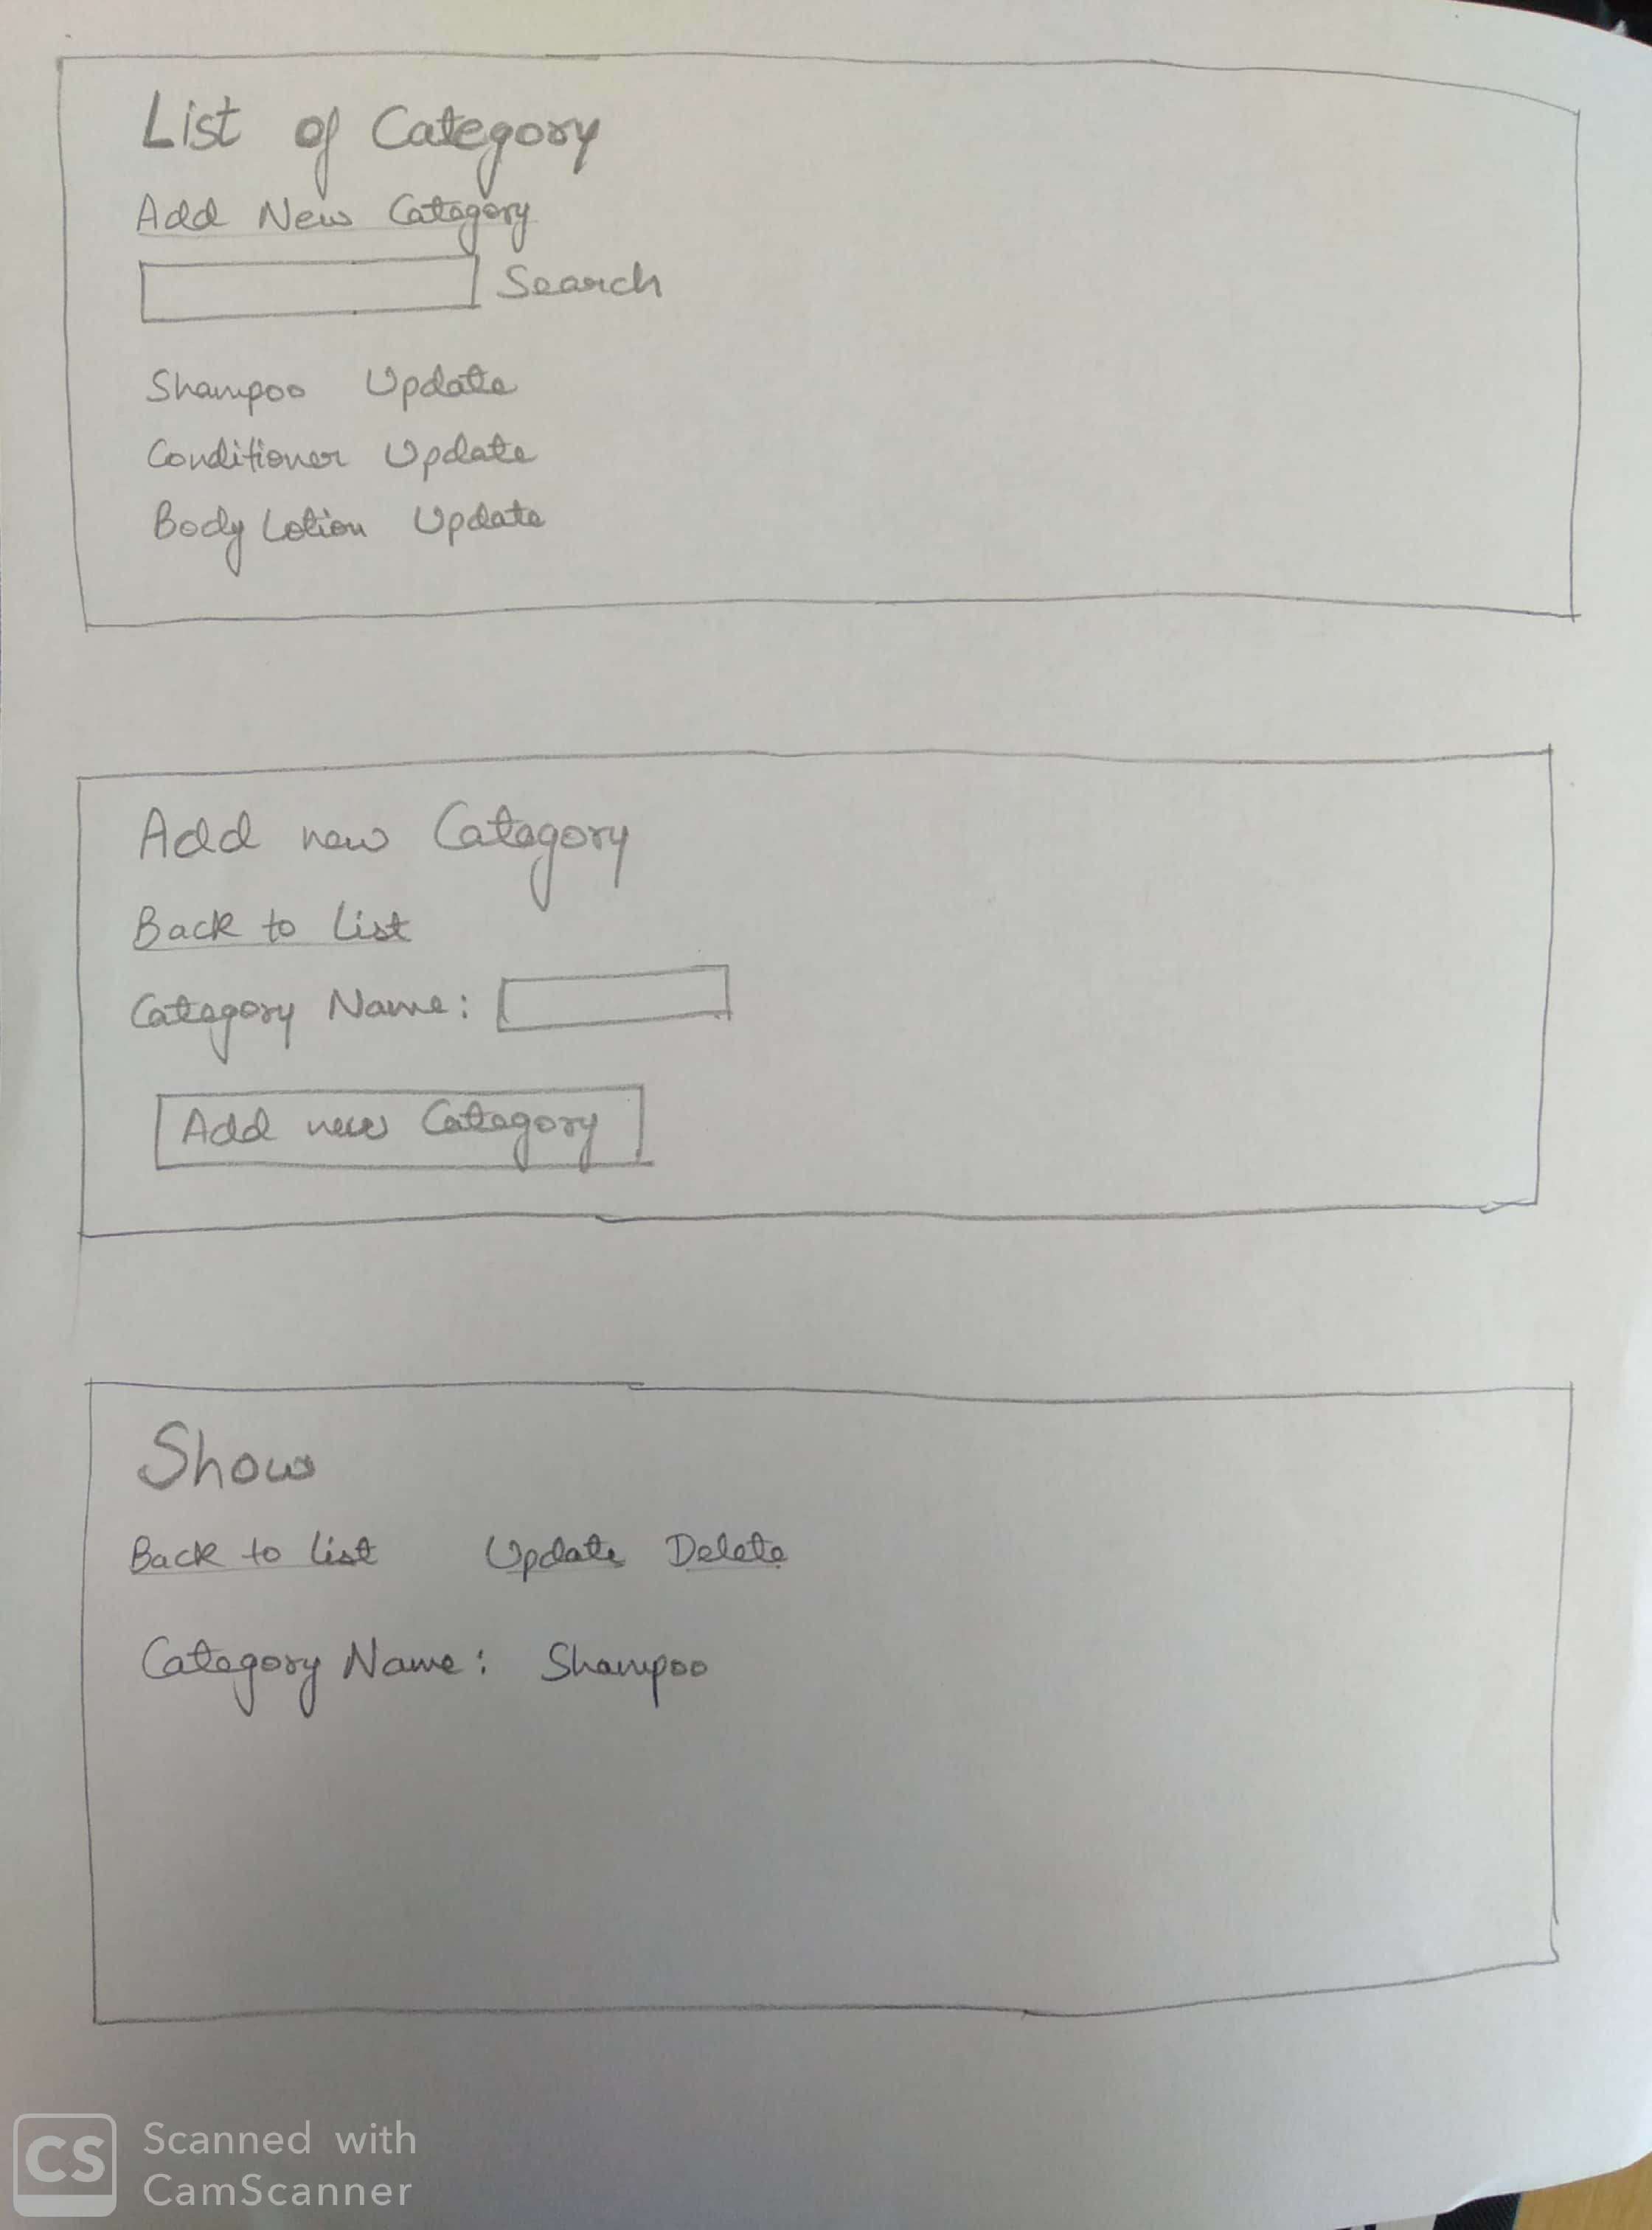 List of Category
Add New Category
Search
Shampoo Update
Conditioner Update
Body Lotion Update
Add new Category
Back to List
Category Name:
Add new Category
Show
Back to list Update Delete
Category Name: Shampoo
CS Scanned with
CamScanner